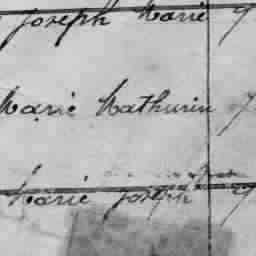 Joseph Marie
Marie Mathurin
Marie Joseph